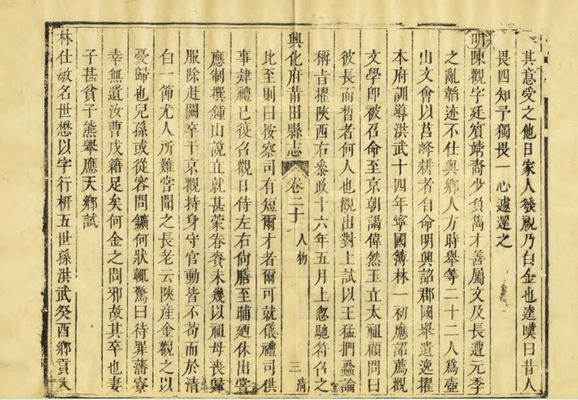 其意受之他日家人發視乃白金也達嘆曰昔人
畏四知予獨畏一心遽還之
明陳觀字廷賓靖裔少負雋才善屬文及長遭元季
之亂韜迹不仕與鄉人方時舉等二十二人為壺
山文會以莒峰耕者自命明興詔郡國舉遺逸擢
本府訓導洪武十四年寧國簿林一初應詔薦觀
文學即被召命至京朝謁偉然玉立太祖顧問曰
彼長而皙者何人也觀出對上試以王猛捫蝨論
稱旨擢陝西右參政十六年五月上忽馳符召之
興化府莆田縣志 卷二十 人物 三
比至則曰按察司有短爾才者爾可就儀禮司供
事肄禮已後名觀日侍左右伺膳至晡廼休出嘗
應制撰鍾山說立就甚蒙眷賚未幾以祖母喪歸
服除赴闕卒于京觀持身守官動皆不苟而於清
白一節尤人所難嘗聞之長老云陝產金觀之以
憂歸也兒孫或從容問鑛何狀輒驚曰待罪藩寮
幸無遺汝曹戍籍足矣何金之問邪故其卒也妻
子甚貧子熊舉應天鄉試
林仕敏名世懋以字行枅五世孫洪武癸酉鄉貢入